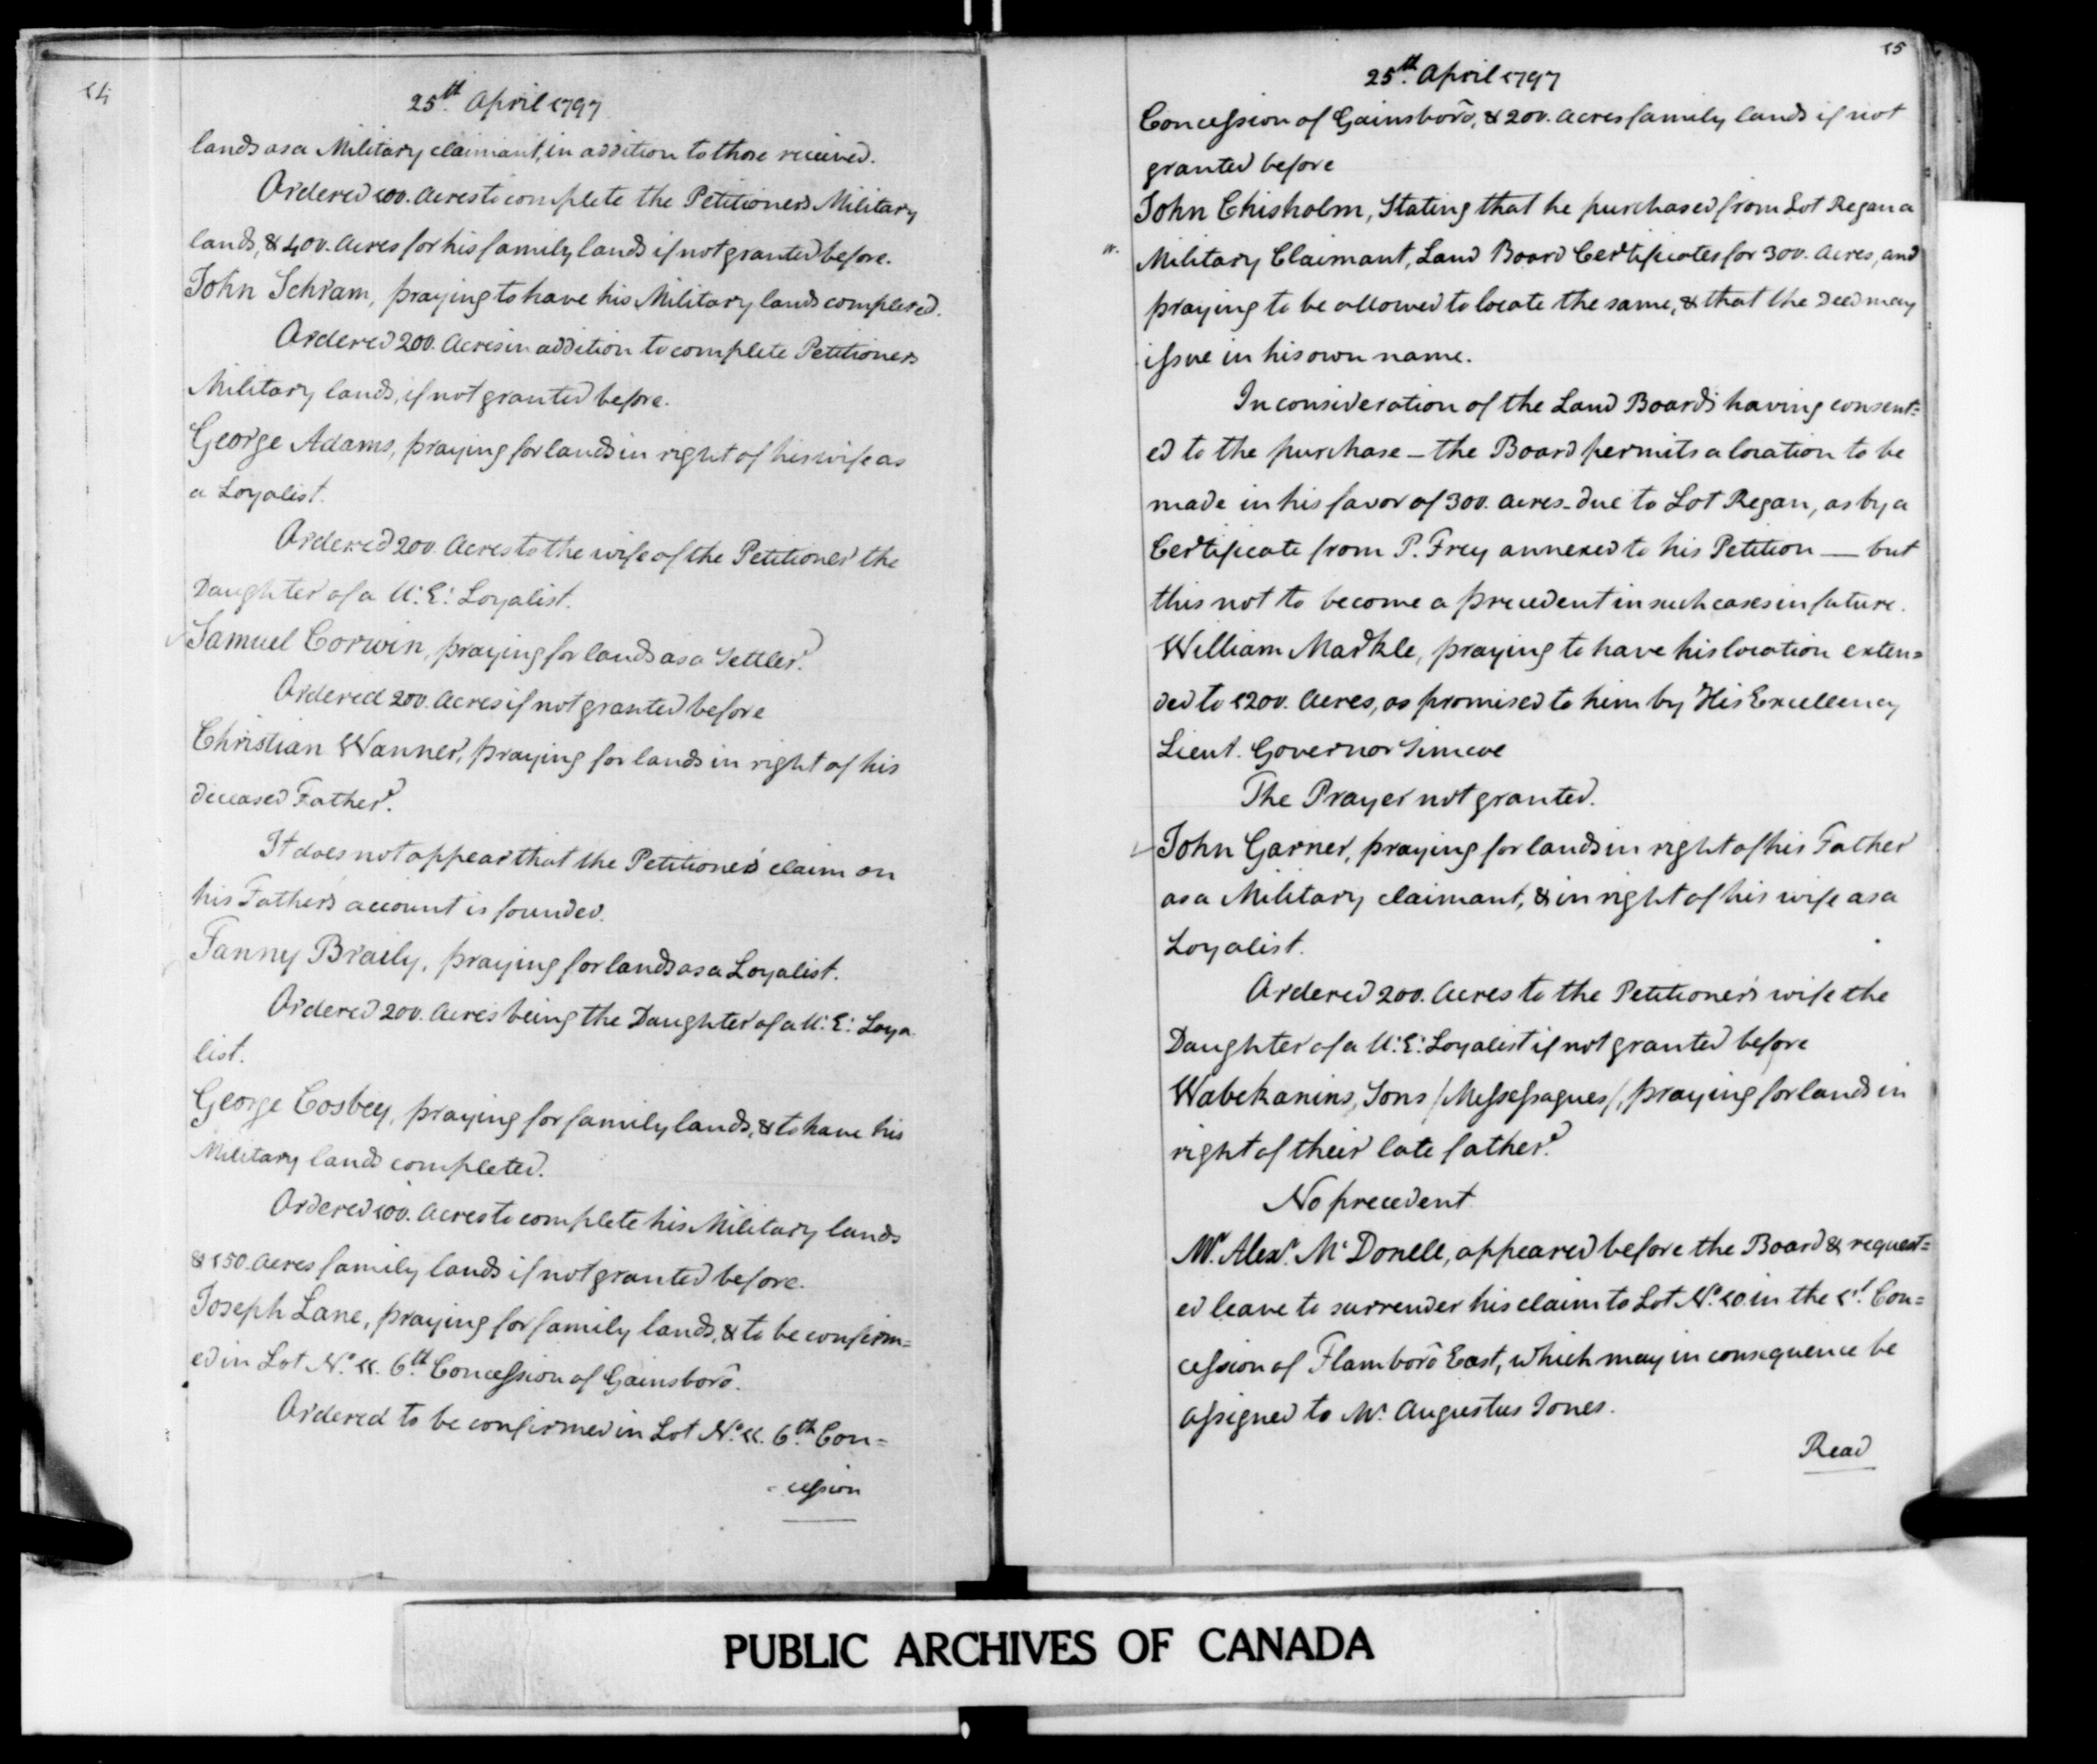 14
25th. April 1797
lands as a Military claimant, in addition to those received.
Ordered 100. Acres to complete the Petitioners Military
lands, & 400. Acres for his family lands if not granted before.
John Schram, praying to have his Military lands completed.
Ordered 200. Acres in addition to complete Petitioners
Military lands, if not granted before.
George Adams, praying for lands in right of his wife as
a Loyalist.
Ordered 200. Acres to the wife of the Petitioner the
Daughter of a U: E: Loyalist.
Samuel Corwin, praying for lands as a Settler.
Ordered 200. Acres if not granted before
Christian Wanner, praying for lands in right of his
deceased Father.
It does not appear that the Petitioner's claim on
his Father's account is founded.
Fanny Braily, praying for lands as a Loyalist.
Ordered 200. Acres being the Daughter of a U: E: Loya
list.
George Cosbey, praying for family lands, & to have his
Military lands completed.
Ordered 100. Acres to complete his Military lands
& 150. Acres family lands if not granted before.
Joseph Lane, praying for family lands, & to be confirm=
ed in Lot No. 11. 6th. Concession of Gainsboro.
Ordered to be confirmed in Lot No. 11. 6th. Con=
cession
15
25th. April 1797
Concession of Gainsboro, & 200. Acres family lands if not
granted before
John Chisholm, Stating that he purchased from Lot Regan a
Military Claimant, Land Board Certificates for 300. Acres, and
praying to be allowed to locate the same, & that the Deed may
issue in his own name.
In consideration of the Land Boards having consent=
ed to the purchase – the Board permits a location to be
made in his favor of 300. acres – due to Lot Regan, as by a
Certificate from P. Frey annexed to his Petition — but
this not to become a precedent in such cases in future.
William Markle, praying to have his location exten=
ded to 1200. Acres, as promised to him by His Excellency
Lieut. Governor Simcoe
The Prayer not granted.
John Garner, praying for lands in right of his Father
as a Military claimant, & in right of his wife as a
Loyalist.
Ordered 200. Acres to the Petitioner's wife the
Daughter of a U: E: Loyalist if not granted before
Wabekanins, Sons /Messessagues/, praying for lands in
right of their late father.
No precedent
Mr. Alexr. McDonell, appeared before the Board & request=
ed leave to surrender his claim to Lot No. 10 in the 1st. Con=
cession of Flamboro East, which may in consequence be
assigned to Mr. Augustus Jones.
Read
PUBLIC ARCHIVES OF CANADA